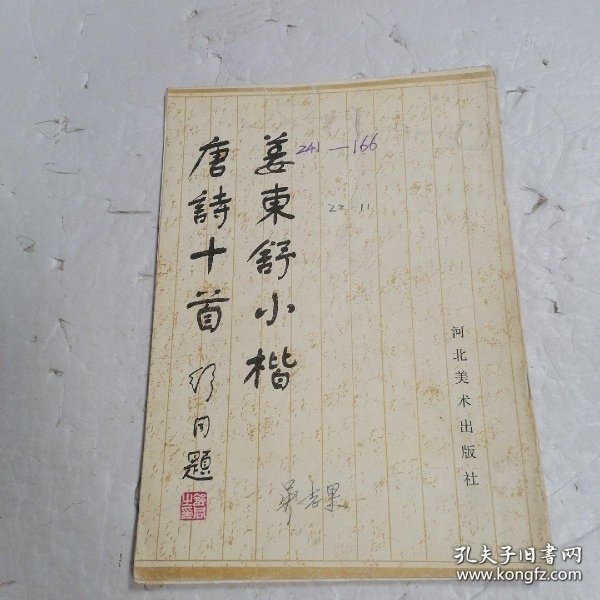 姜東舒小楷
唐詩十首
同題
241—166
22.11
河北美术出版社
孔夫子旧书网
www.kongfz.com